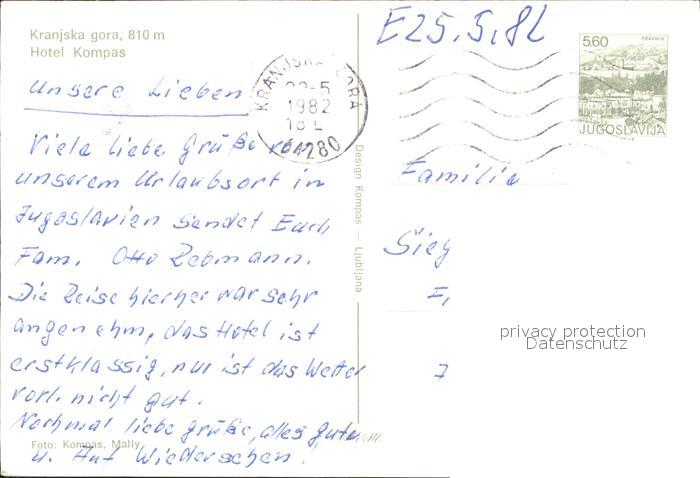 Kranjska gora, 810 m
Hotel Kompas
E 25.5.82
KRANJSKA GORA
1982
18
64280
5,60
TRAVNIK
JUGOSLAVIJA
Unsere Lieben
Viele liebe Grüße von
unserem Urlaubsort in
Jugoslavien sendet Euch
Fam. Otto Rebmann.
Die Reise hierher war sehr
angenehm, das Hotel ist
erstklassig, nur ist das Wetter
vorl. nicht gut.
Nochmal liebe Grüße, alles gute
u. Auf Wiedersehen.
Foto: Kompas, Mally
Design Kompas — Ljubljana
Familie
Sieg
privacy protection
Datenschutz